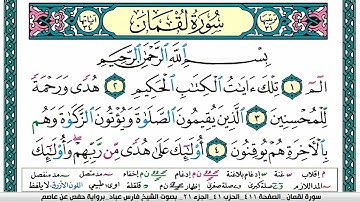 سُورَةُ لُقْمَانَ
بِسْمِ ٱللَّهِ ٱلرَّحْمَٰنِ ٱلرَّحِيمِ
الٓمٓ ١ تِلْكَ ءَايَٰتُ ٱلْكِتَٰبِ ٱلْحَكِيمِ ٢ هُدًى وَرَحْمَةً
لِّلْمُحْسِنِينَ ٣ ٱلَّذِينَ يُقِيمُونَ ٱلصَّلَوٰةَ وَيُؤْتُونَ ٱلزَّكَوٰةَ وَهُم
بِٱلْءَاخِرَةِ هُمْ يُوقِنُونَ ٤ أُو۟لَٰٓئِكَ عَلَىٰ هُدًى مِّن رَّبِّهِمْ ۖ وَأُو۟لَٰٓئِكَ
سورة لقمان الصفحة ٤١١ الحزب ٤١ الجزء ٢١ بصوت الشيخ فارس عباد برواية حفص عن عاصم